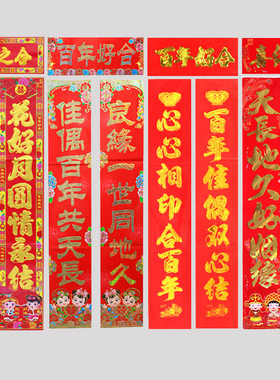 之合
百年好合
百年好合
喜
花好月圓情永結
佳偶百年共天長
良緣一世同地久
心心相印合百年
百年佳偶双心結
天長地久好姻緣